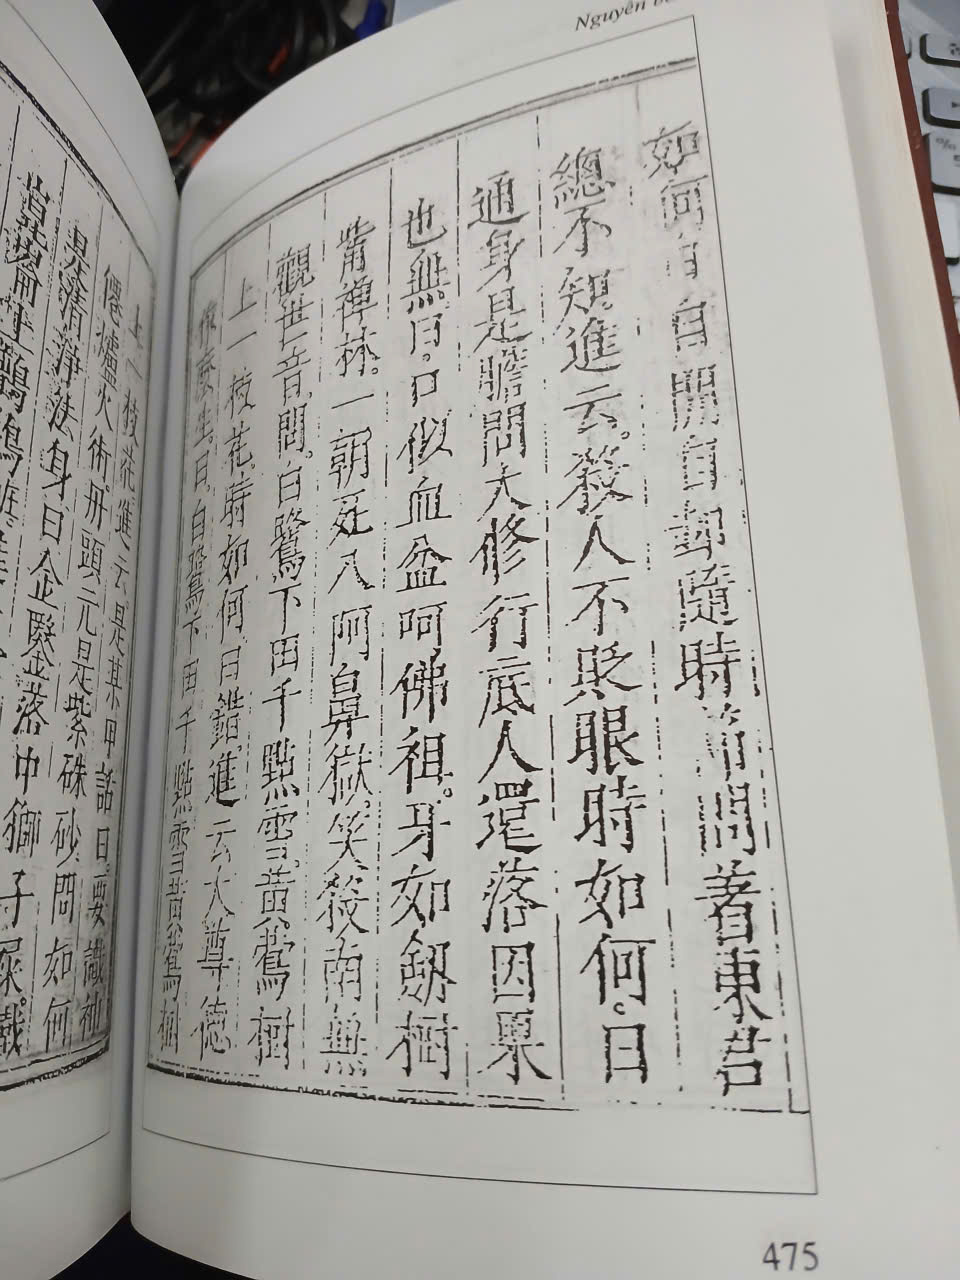 Nguyên b
如何曰自開自却隨時節問著東君
總不知進云殺人不貶眼時如何曰
通身是膽問大修行底人還落因果
也無曰口似血盆呵佛祖牙如劔樹
觜禪林一朝死入阿鼻獄笑殺南無
觀世音問白鷺下田千點雪黃鶯
上一枝花時如何曰錯進云大尊德
作麼生曰白鷺下田千點雪黃鶯樹
上一枝花進云是某甲話曰要識神
僊爐火術丹頭元是紫硃砂問如何
是清淨法身曰金
落中獅子屎
475